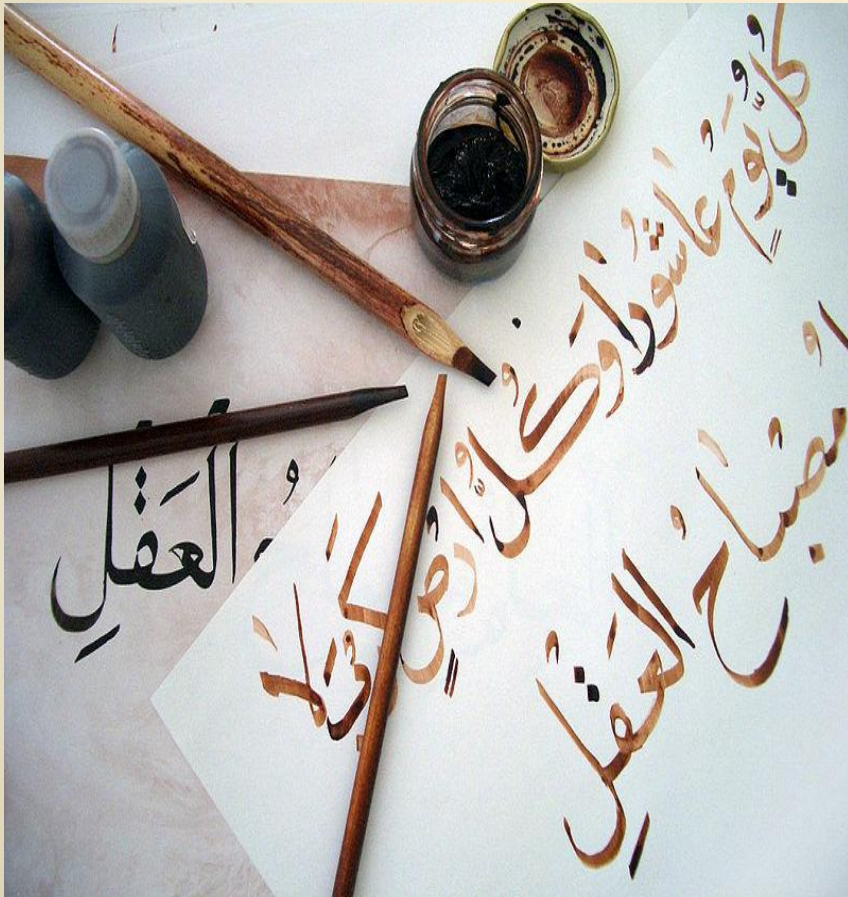 كُلُّ يَوْمٍ عَاشُورَا وَ كُلُّ اَرْضٍ كَرْبَلَا
مِصْبَاحُ الْعَقْلِ
الْعَقْلِ